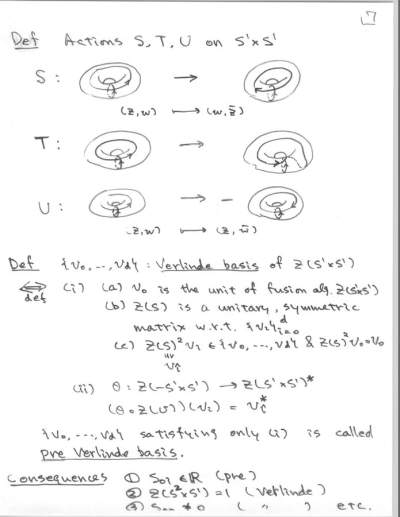 7
Def Actions S, T, U on S'×S'
S : →
(z, w) ⟼ (w, z̄)
T : →
U : → −
(z, w) ⟼ (z, w̄)
Def {v₀, ..., v_d} : Verlinde basis of Z(S'×S')
⟺ def (i) (a) v₀ is the unit of fusion alg. Z(S'×S')
(b) Z(S) is a unitary, symmetric
matrix w.r.t. {vᵢ}ᵈᵢ₌₀
(c) Z(S)² vᵢ ∈ {v₀, ..., v_d} & Z(S)² v₀ = v₀
(ii) θ : Z(-S'×S') → Z(S'×S')*
(θ∘Z(U))(vᵢ) = vᵢ*
{v₀, ..., v_d} satisfying only (i) is called
pre Verlinde basis.
Consequences ① S₀ᵢ ∈ ℝ (pre)
② Z(S²×S') = 1 (Verlinde)
③ S₀₀ ≠ 0 ( " ) etc.